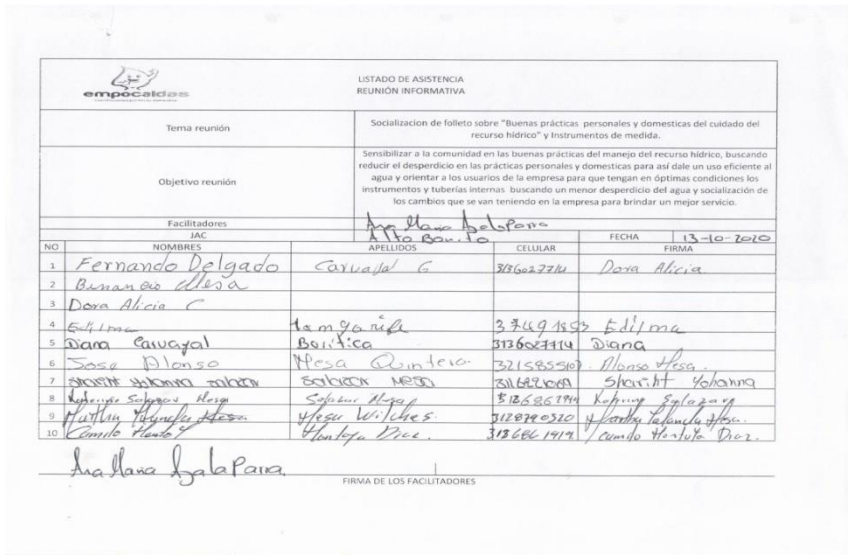 empocaldas
LISTADO DE ASISTENCIA
REUNIÓN INFORMATIVA
Tema reunión
Socializacion de folleto sobre "Buenas prácticas personales y domesticas del cuidado del
recurso hídrico" y Instrumentos de medida.
Objetivo reunión
Sensibilizar a la comunidad en las buenas prácticas del manejo del recurso hídrico, buscando
reducir el desperdicio en las prácticas personales y domesticas para así dale un uso eficiente al
agua y orientar a los usuarios de la empresa para que tengan en óptimas condiciones los
instrumentos y tuberías internas buscando un menor desperdicio del agua y socialización de
los cambios que se van teniendo en la empresa para brindar un mejor servicio.
Facilitadores Ana Maria
JAC Alto Bonito FECHA 13-10-2020
NO NOMBRES APELLIDOS CELULAR FIRMA
1 Fernando Delgado Carvajal G Dora Alicia
2 Mesa
3 Dora Alicia C
4 Edilma Edilma
5 Diana Carvajal 3136027714 Diana
6 Jose Alonso Mesa Quintero Alonso Mesa.
7 Shariht Yohanna Salazar Salazar Mesa Shariht Yohanna
8 Salazar Mesa Salazar Salazar
9 Martha Mesa Mesa Wilches. 3128790520 Martha Mesa.
10 Camilo Montoya Diaz. 3136861919 Camilo Montoya Diaz.
Ana Maria
FIRMA DE LOS FACILITADORES